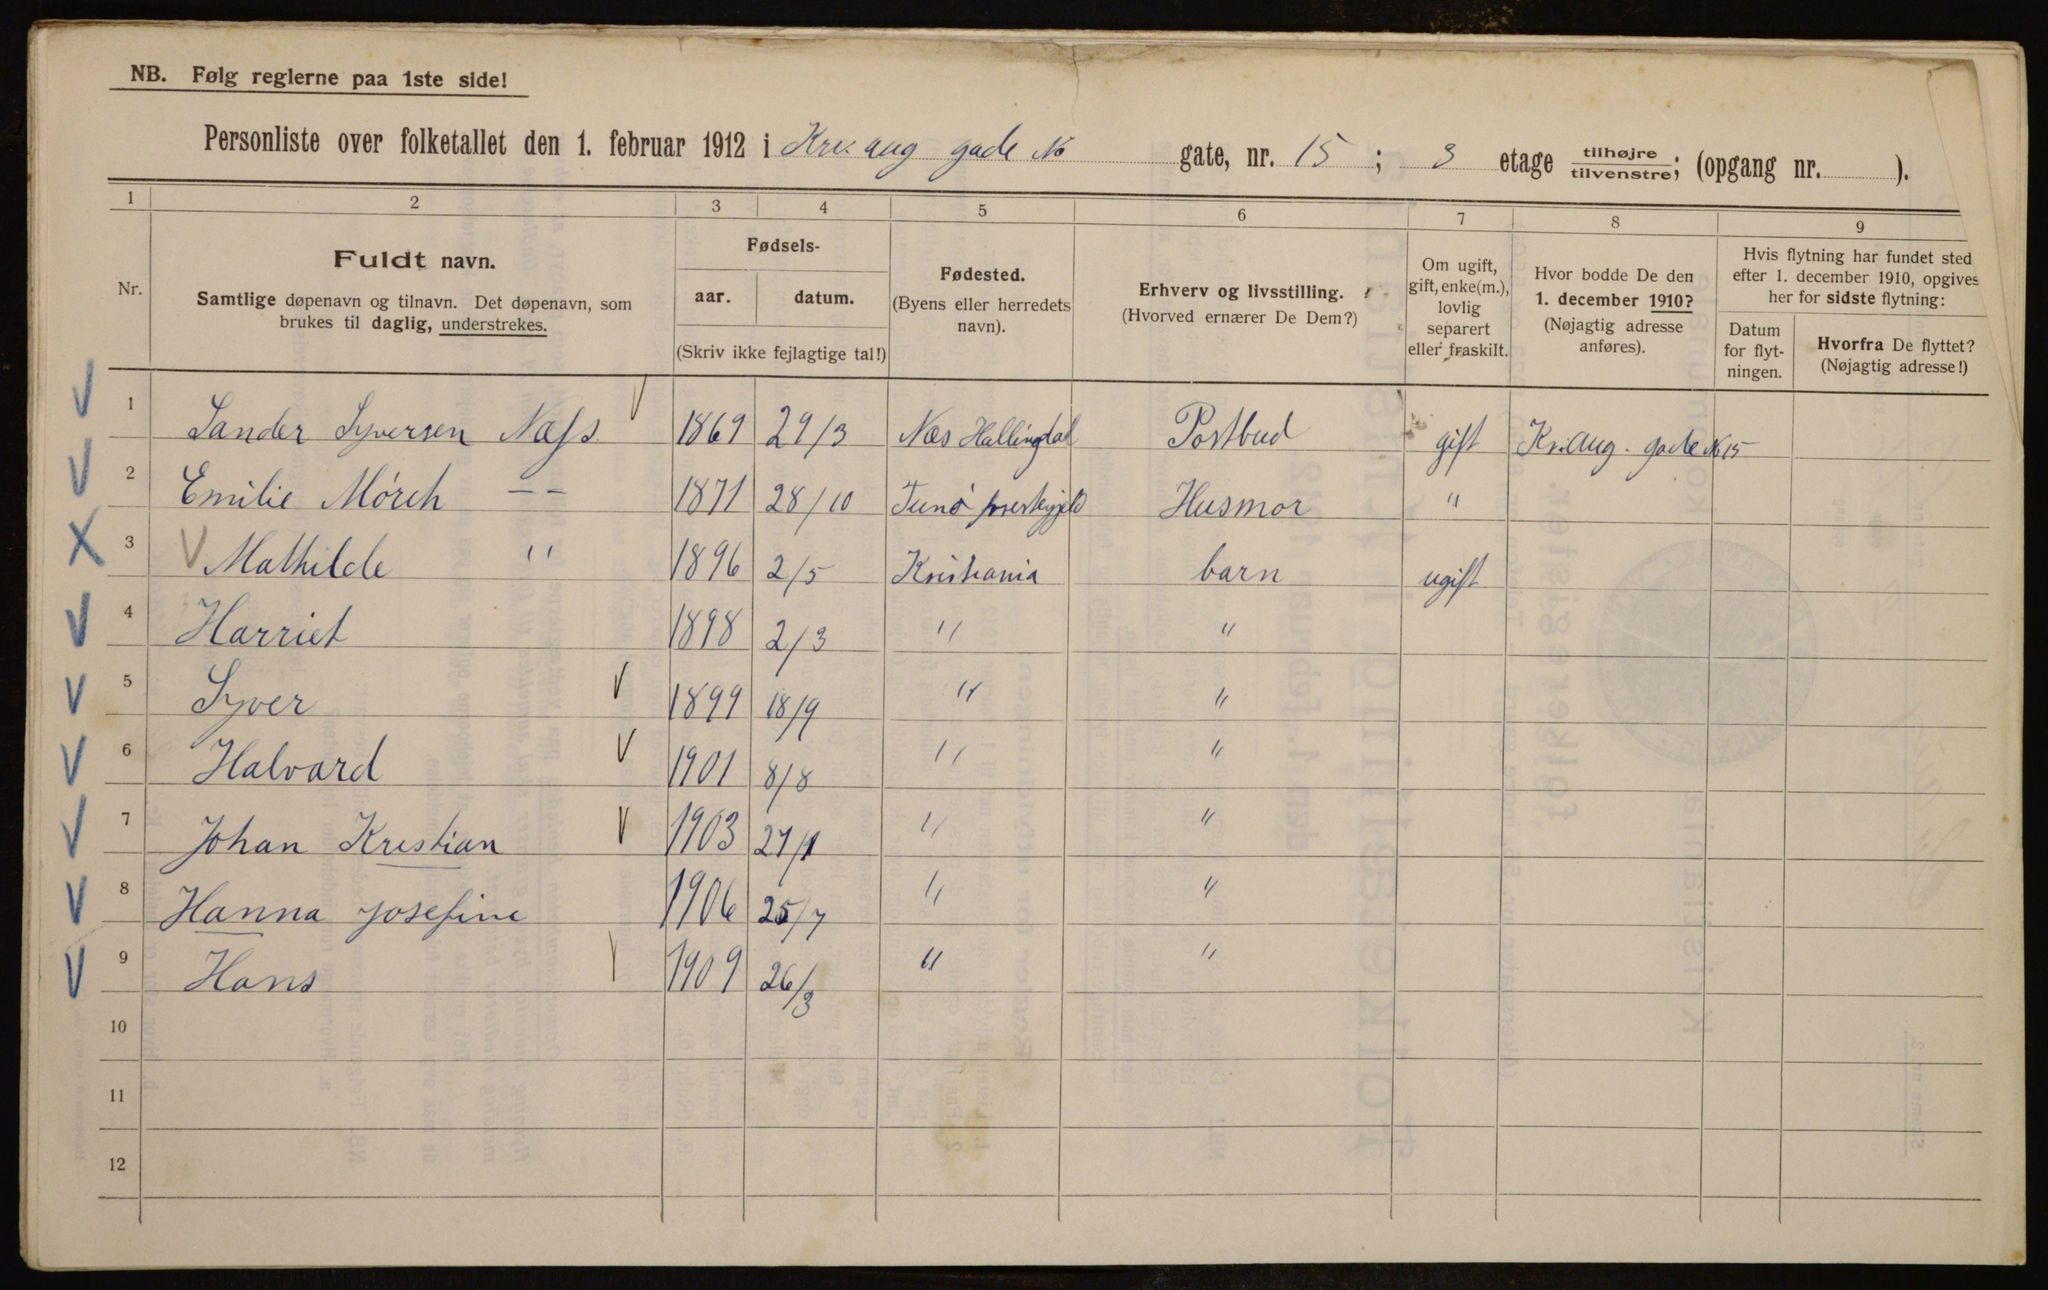 NB. Følg reglerne paa 1ste side!
Personliste over folketallet den 1. februar 1912 i Krr. aug gade No gate, nr. 15 ; 3 etage tilhøjre tilvenstre; (opgang nr. ).
1 2 3 4 5 6 7 8 9
Nr.
Fuldt navn.
Samtlige døpenavn og tilnavn. Det døpenavn, som
brukes til daglig, understrekes.
Fødsels-
aar. datum.
(Skriv ikke fejlagtige tal!)
Fødested.
(Byens eller herredets
navn).
Erhverv og livsstilling.
(Hvorved ernærer De Dem?)
Om ugift,
gift, enke(m.),
lovlig
separert
eller fraskilt.
Hvor bodde De den
1. december 1910?
(Nøjagtig adresse
anføres).
Hvis flytning har fundet sted
efter 1. december 1910, opgives
her for sidste flytning:
Datum
for flyt-
ningen.
Hvorfra De flyttet?
(Nøjagtig adresse!)
1 Sander Syversen Næss 1869 29/3 Næs Hallingdal Postbud gift Kr. Aug. gade No 15
2 Emilie Mørch -- 1871 28/10 Tunø Husmor "
3 Mathilde " 1896 2/5 Kristiania barn ugift
4 Harriet 1898 2/3 " "
5 Syver 1899 18/9 " "
6 Halvard 1901 8/8 " "
7 Johan Kristian 1903 27/1 " "
8 Hanna Josefine 1906 25/7 " "
9 Hans 1909 26/3 " "
10
11
12